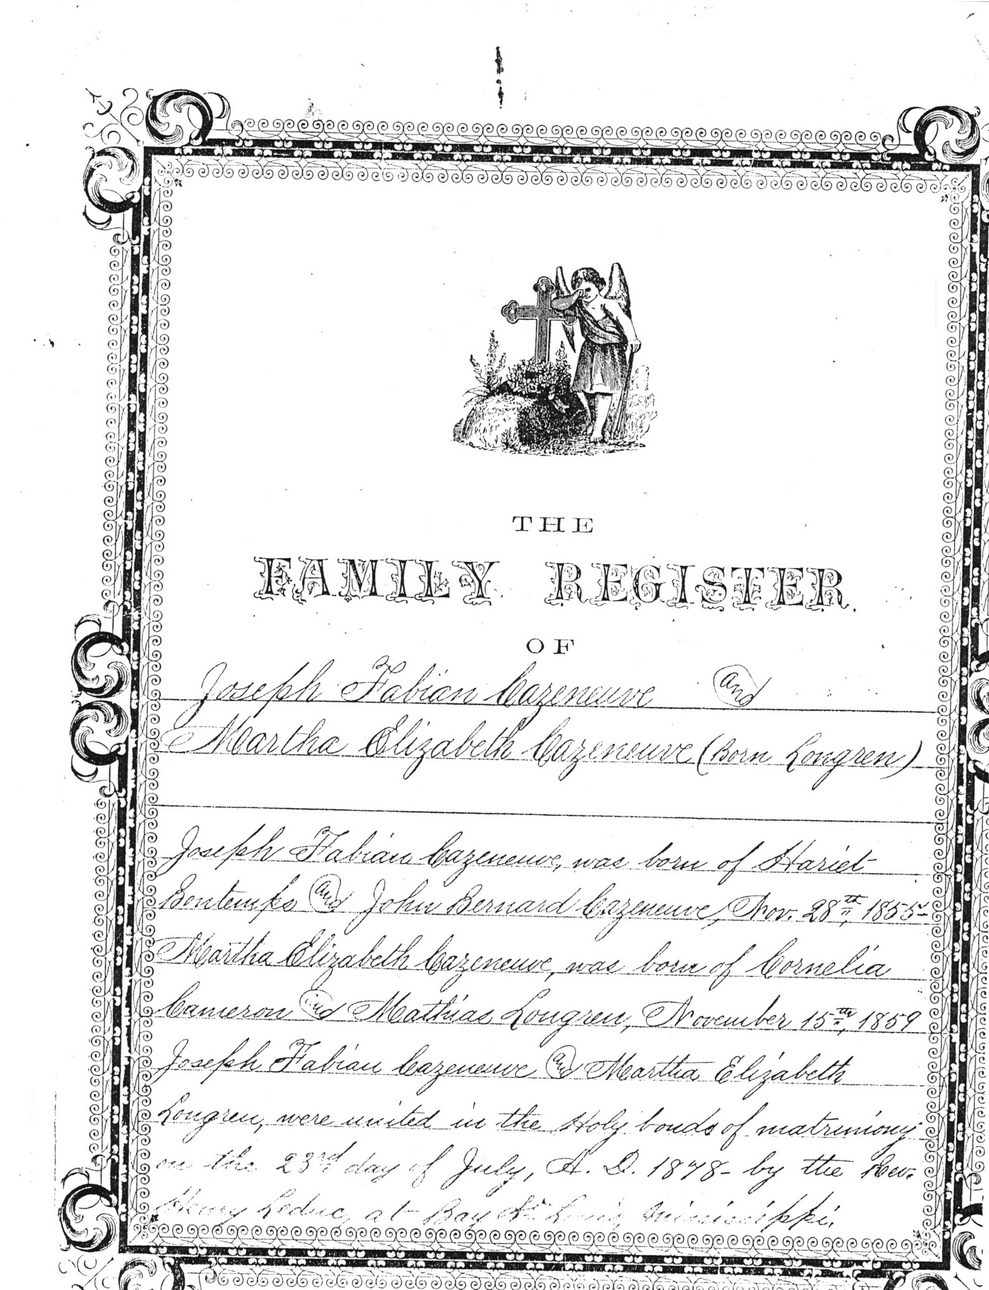 THE
FAMILY REGISTER.
OF
Joseph Fabian Cazeneuve and
Martha Elizabeth Cazeneuve (Born Longren)
Joseph Fabian Cazeneuve, was born of Hariet
Bontemps and John Bernard Cazeneuve, Nov. 28th, 1855-
Martha Elizabeth Cazeneuve, was born of Cornelia
Cameron and Mathias Longren, November 15th, 1859
Joseph Fabian Cazeneuve and Martha Elizabeth
Longren, were united in the Holy bonds of matrimony
on the 23rd day of July, A. D. 1878- by the Rev.
Henry Leduc, at Bay St. Louis, Mississippi.